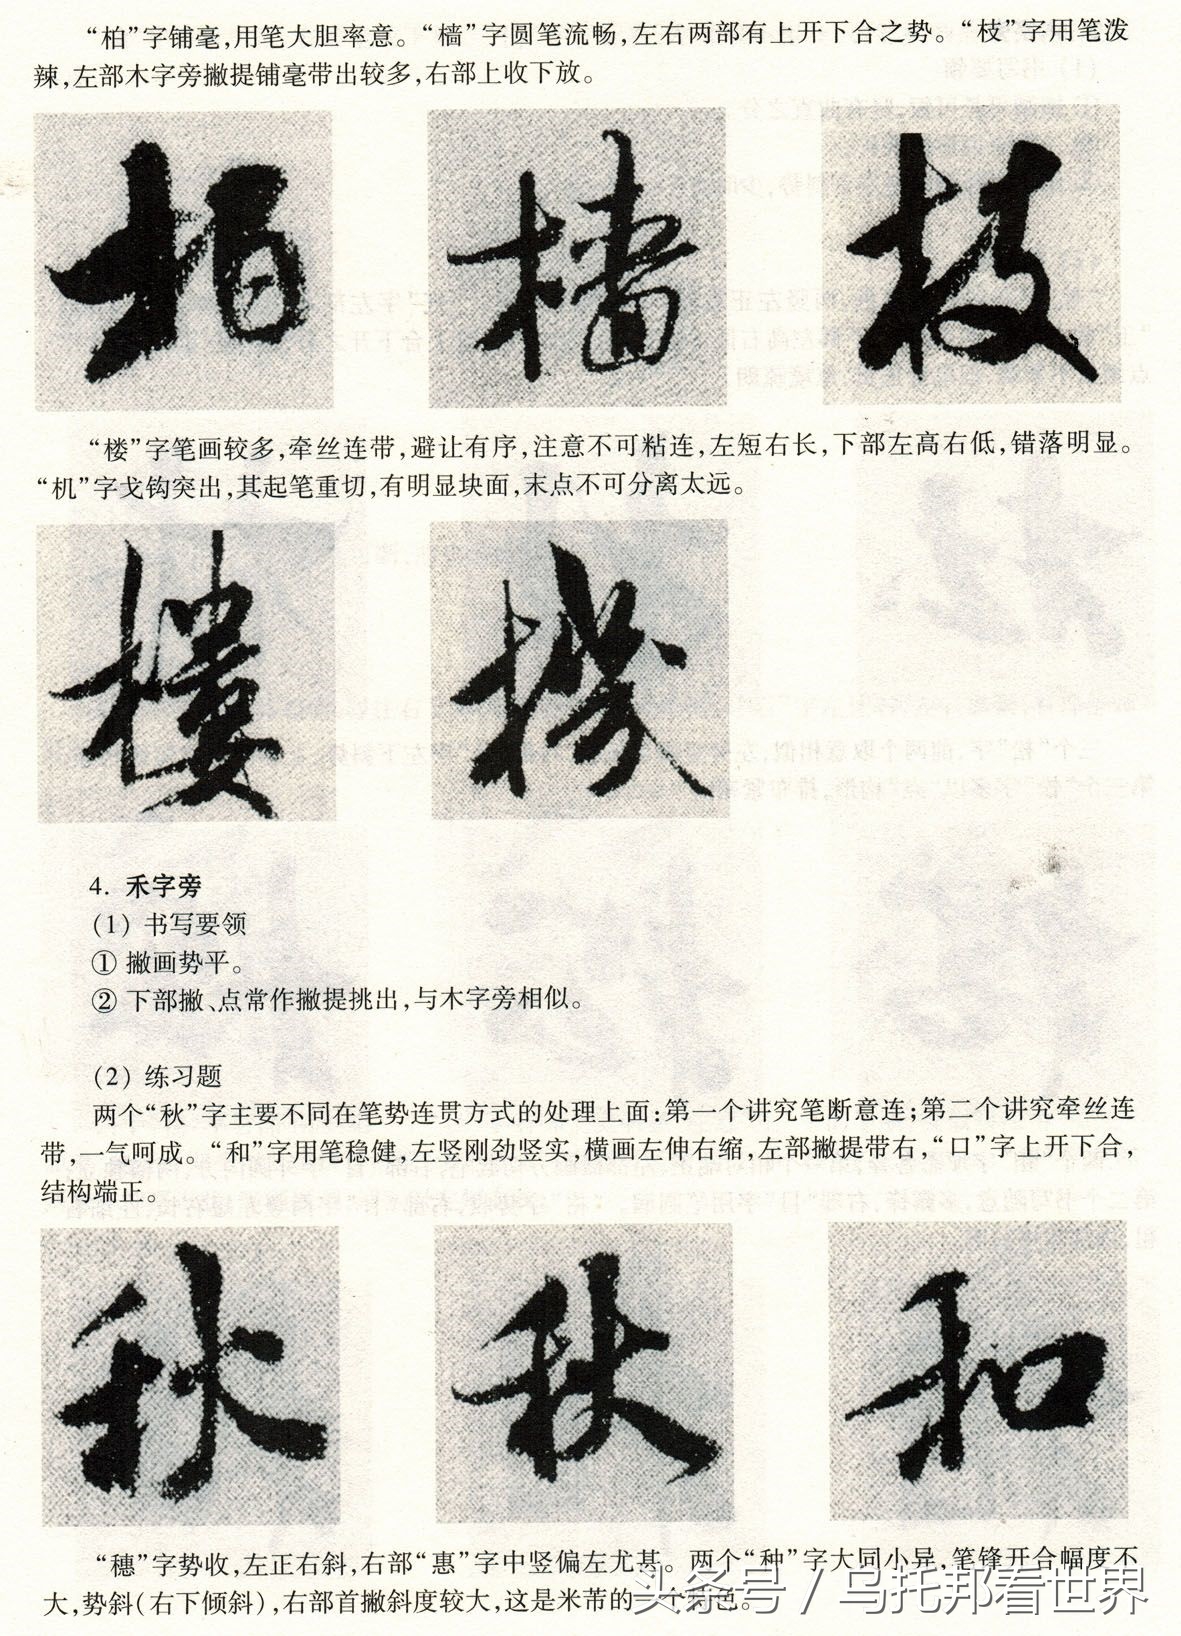 “柏”字铺毫,用笔大胆率意。“樯”字圆笔流畅,左右两部有上开下合之势。“枝”字用笔泼
辣,左部木字旁撇提铺毫带出较多,右部上收下放。
柏 樯 枝
“楼”字笔画较多,牵丝连带,避让有序,注意不可粘连,左短右长,下部左高右低,错落明显。
“机”字戈钩突出,其起笔重切,有明显块面,末点不可分离太远。
樓 機
4. 禾字旁
(1) 书写要领
① 撇画势平。
② 下部撇、点常作撇提挑出,与木字旁相似。
(2) 练习题
两个“秋”字主要不同在笔势连贯方式的处理上面:第一个讲究笔断意连;第二个讲究牵丝连
带,一气呵成。“和”字用笔稳健,左竖刚劲竖实,横画左伸右缩,左部撇提带右,“口”字上开下合,
结构端正。
秋 秋 和
“穗”字势收,左正右斜,右部“惠”字中竖偏左尤甚。两个“种”字大同小异,笔锋开合幅度不
大,势斜(右下倾斜),右部首撇斜度较大,这是米芾的一个特色。
头条号 / 乌托邦看世界